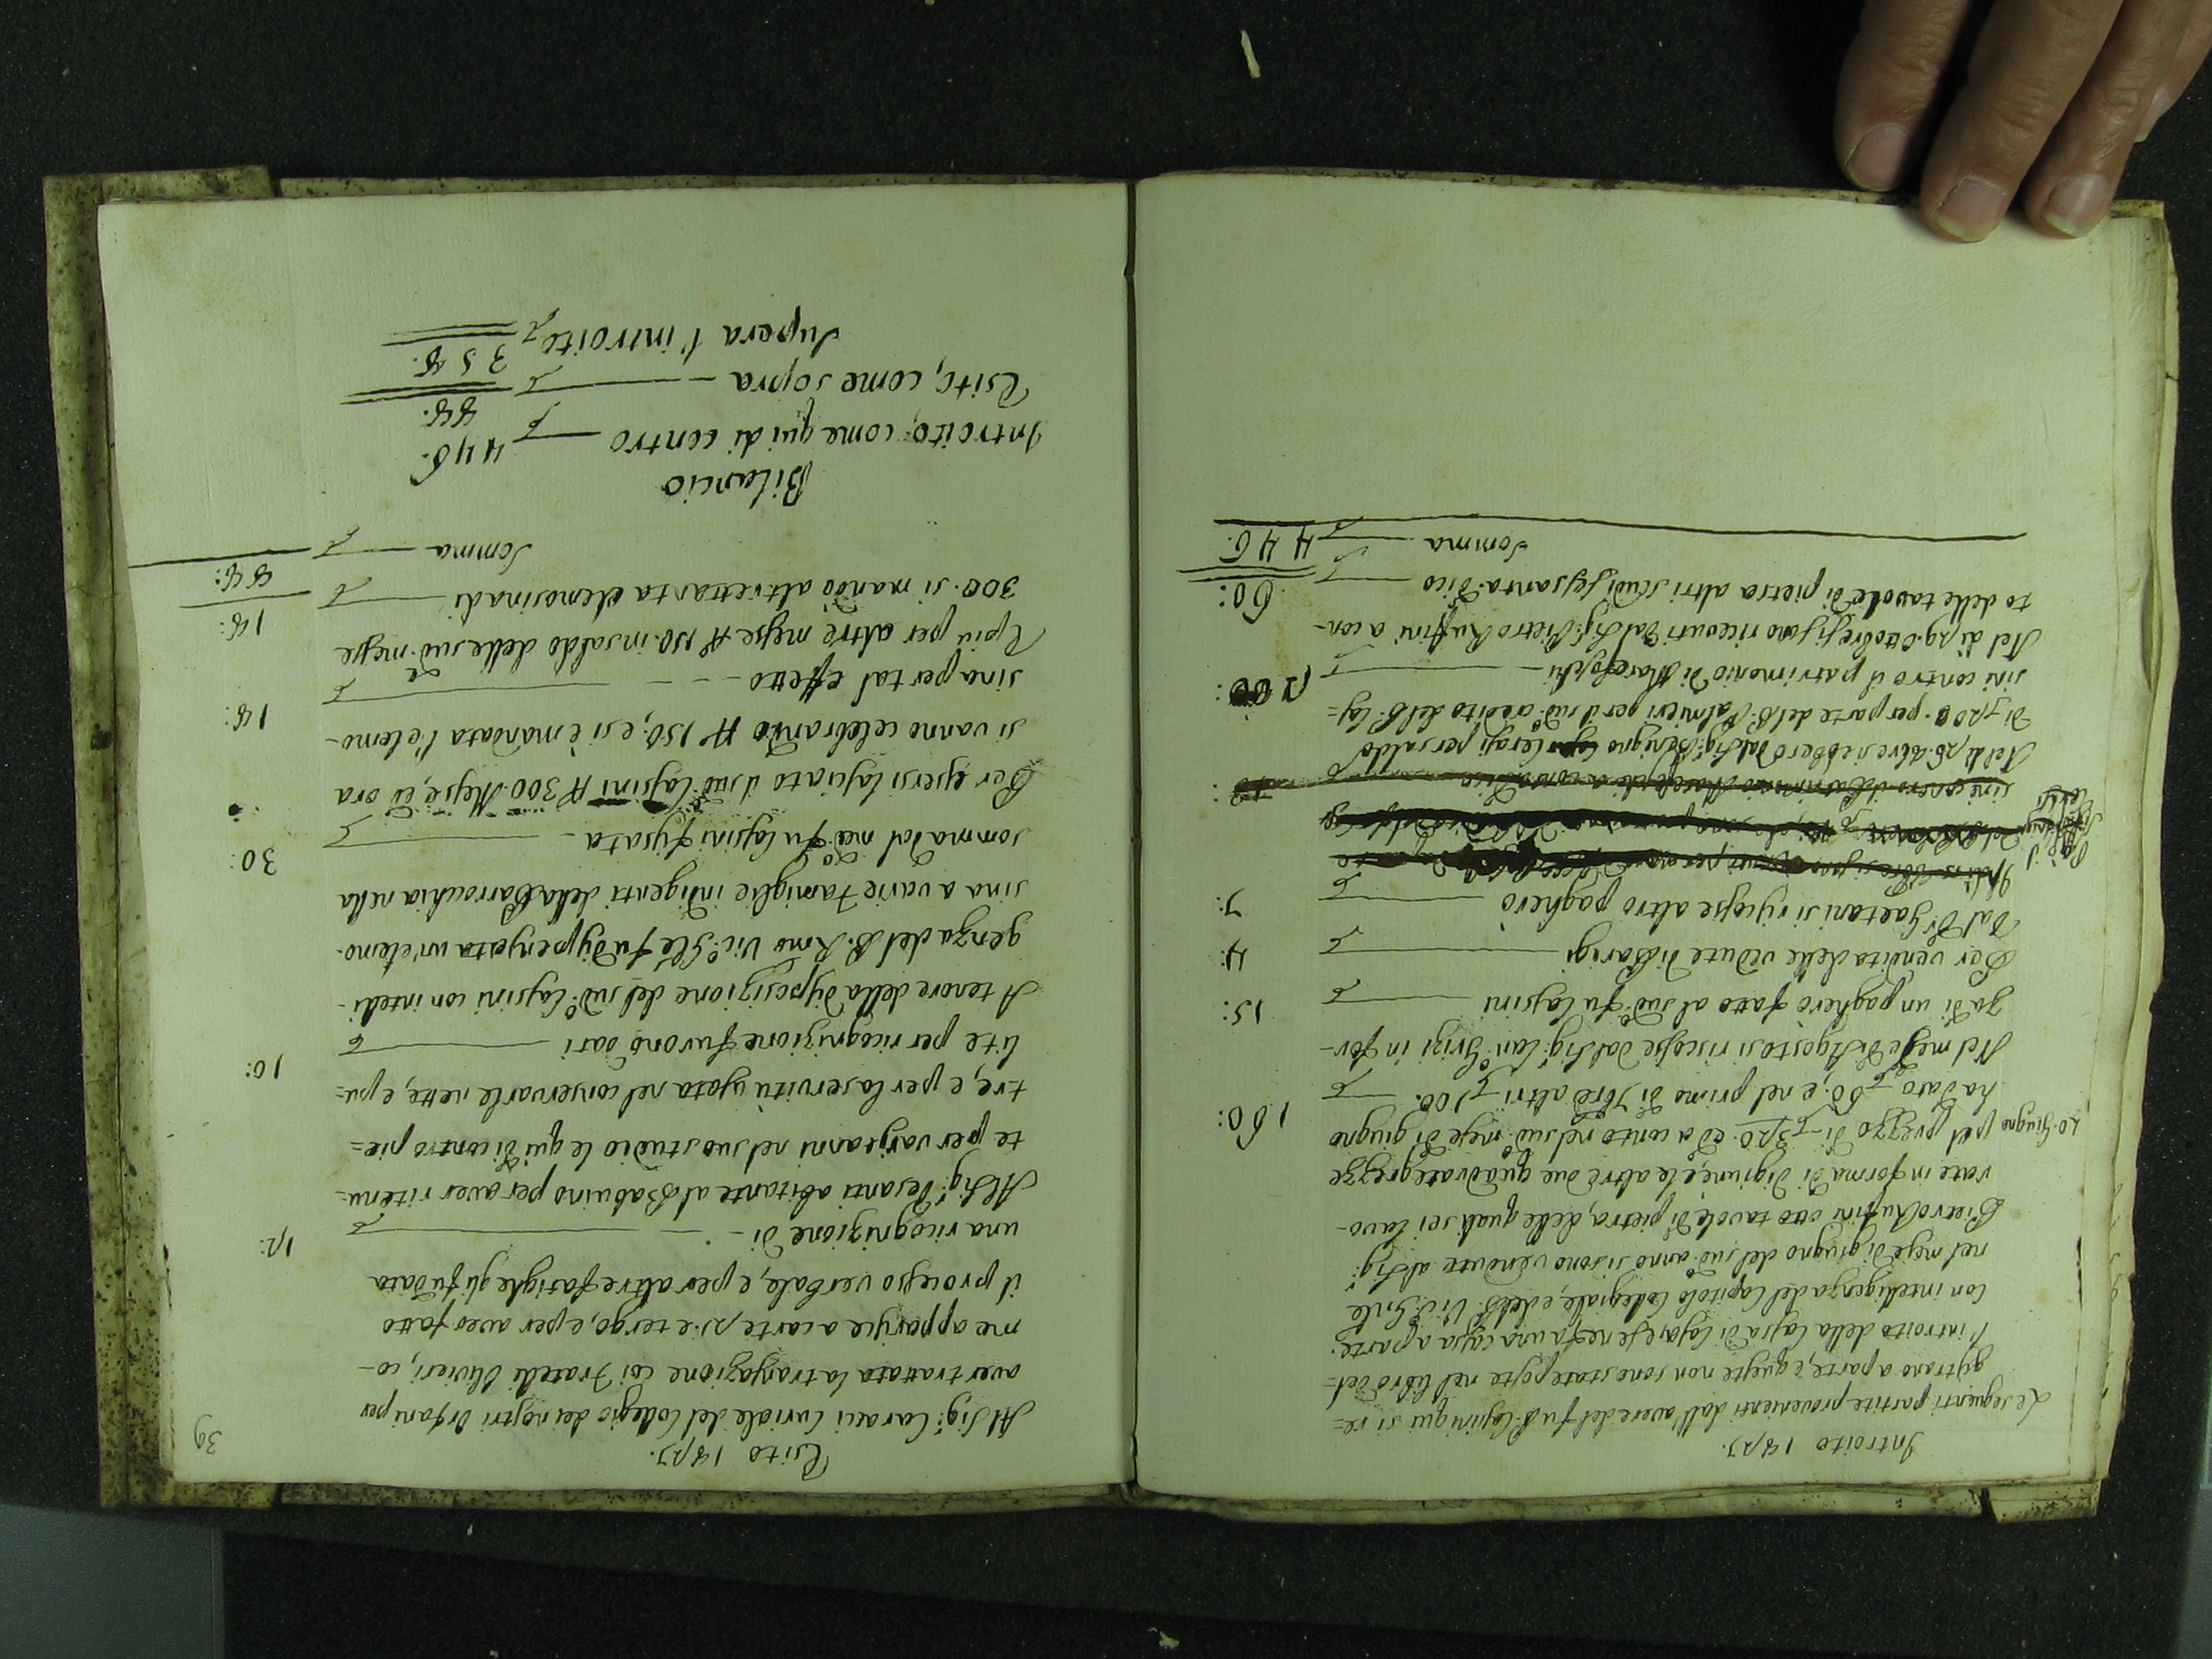 Introito 1827.
Le seguenti partite provenienti dall'avere del fu P. Cassini qui si re=
gistrano a parte, e queste non sono state poste nel libro del=
l'introito della Cassa di Casa, e se ne fa una cassa a parte.
Con intelligenza del Capitolo Collegiale, e del P. Vic. Gnle
nel mese di giugno del sud.º anno si sono vendute al Sig.r
Pietro Ruffini otto tavole di pietra, delle quali sei lavo-
rate in forma di , e le altre due quadrate grezze
20. Giugno pel prezzo di 320. ed a conto nel sud.º mese di giugno
ha dato 60. e nel primo di 7bre altri 100. 160:
Nel mese di Agosto si riscosse dal Sig.r Can.co Grizi in for-
za di un paghero fatto al sud.º fu Cassini 15:
Per vendita delle vedute di Parigi 4:
Dal Dr. Gaetani si riscosse altro paghero 7:
Nel di 26. 8bre si ebbero dal Sig.r Benigno Cerasi per saldo
di 200. per parte del P. Palmieri per il sud.º credito del P. Cas=
sini contro il patrimonio di Marefoschi 200:
Nel di 29. Ottobre si sono ricevuti dal Sig.r Pietro Ruffini a con-
to delle tavole di pietra altri scudi sessanta dico 60:
Somma 446.
39
Esito 1827.
Al Sig.r Caraci Curiale del Collegio dei nostri Orfani per
aver trattata la transazione coi Fratelli Olivieri, co-
me apparisce a carte 21. e tergo, e per aver fatto
il processo verbale, e per altre fatighe gli fu data
una ricognizione di 12:
Al Sig.r Desanti abitante al Babuino per aver ritenu-
te per varj anni nel suo studio le qui di contro pie=
tre, e per la servitù usata nel conservarle nette, e pu=
lite per ricognizione furono dati 10:
A tenore della disposizione del sud.º Cassini con inteli-
genza del P. Rmo Vic.º Gle fu dispensata un'elemo-
sina a varie Famiglie indigenti della Parrocchia nella
somma dal med.º fu Cassini fissata 30:
Per essersi lasciato il sud.º Cassini Nº 300. Messe, ed ora
si vanno celebrando Nº 150., e si è mandata l'elemo-
sina per tal effetto 18:
E più per altre messe Nº 150. in saldo delle sud.e messe
300. si mandò altrettanta elemosina di 18:
Somma 88:
Bilancio
Introito, come qui di contro 446.
Esito, come sopra 88.
Supera l'introito 358.